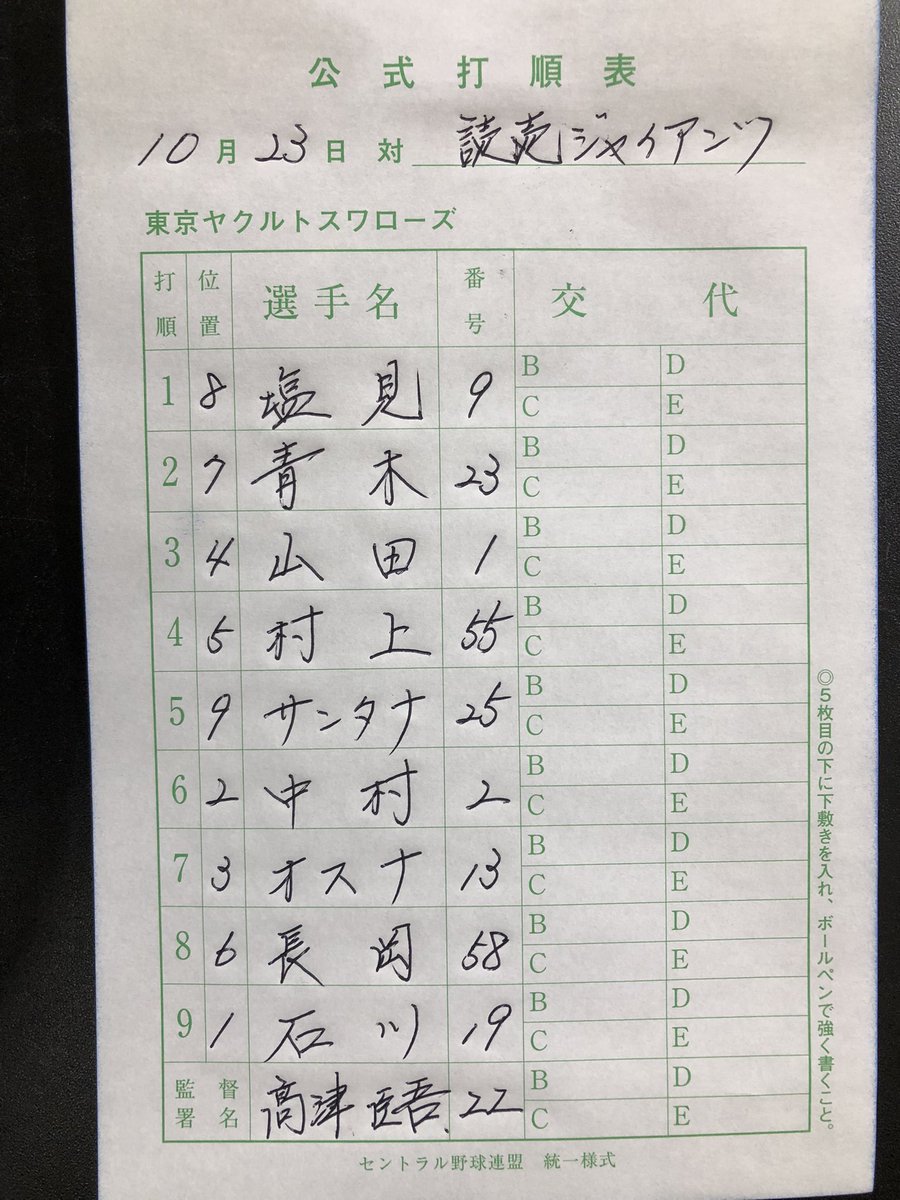 公式打順表
10月23日 対 読売ジャイアンツ
東京ヤクルトスワローズ
打順 位置 選手名 番号 交代
1 8 塩見 9 B D C E
2 7 青木 23 B D C E
3 4 山田 1 B D C E
4 5 村上 55 B D C E
5 9 サンタナ 25 B D C E
6 2 中村 2 B D C E
7 3 オスナ 13 B D C E
8 6 長岡 58 B D C E
9 1 石川 19 B D C E
監督署名 高津臣吾 22 B D C E
◎5枚目の下に下敷きを入れ、ボールペンで強く書くこと。
セントラル野球連盟 統一様式